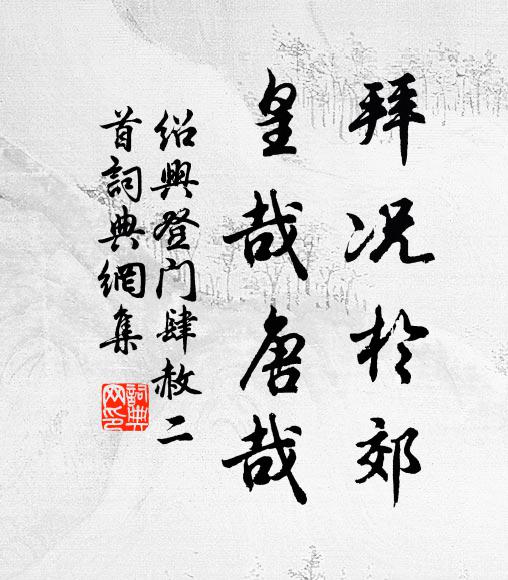 拜况於郊
皇哉唐哉
绍興登门肆赦二
首詞典網集
詞典
网印